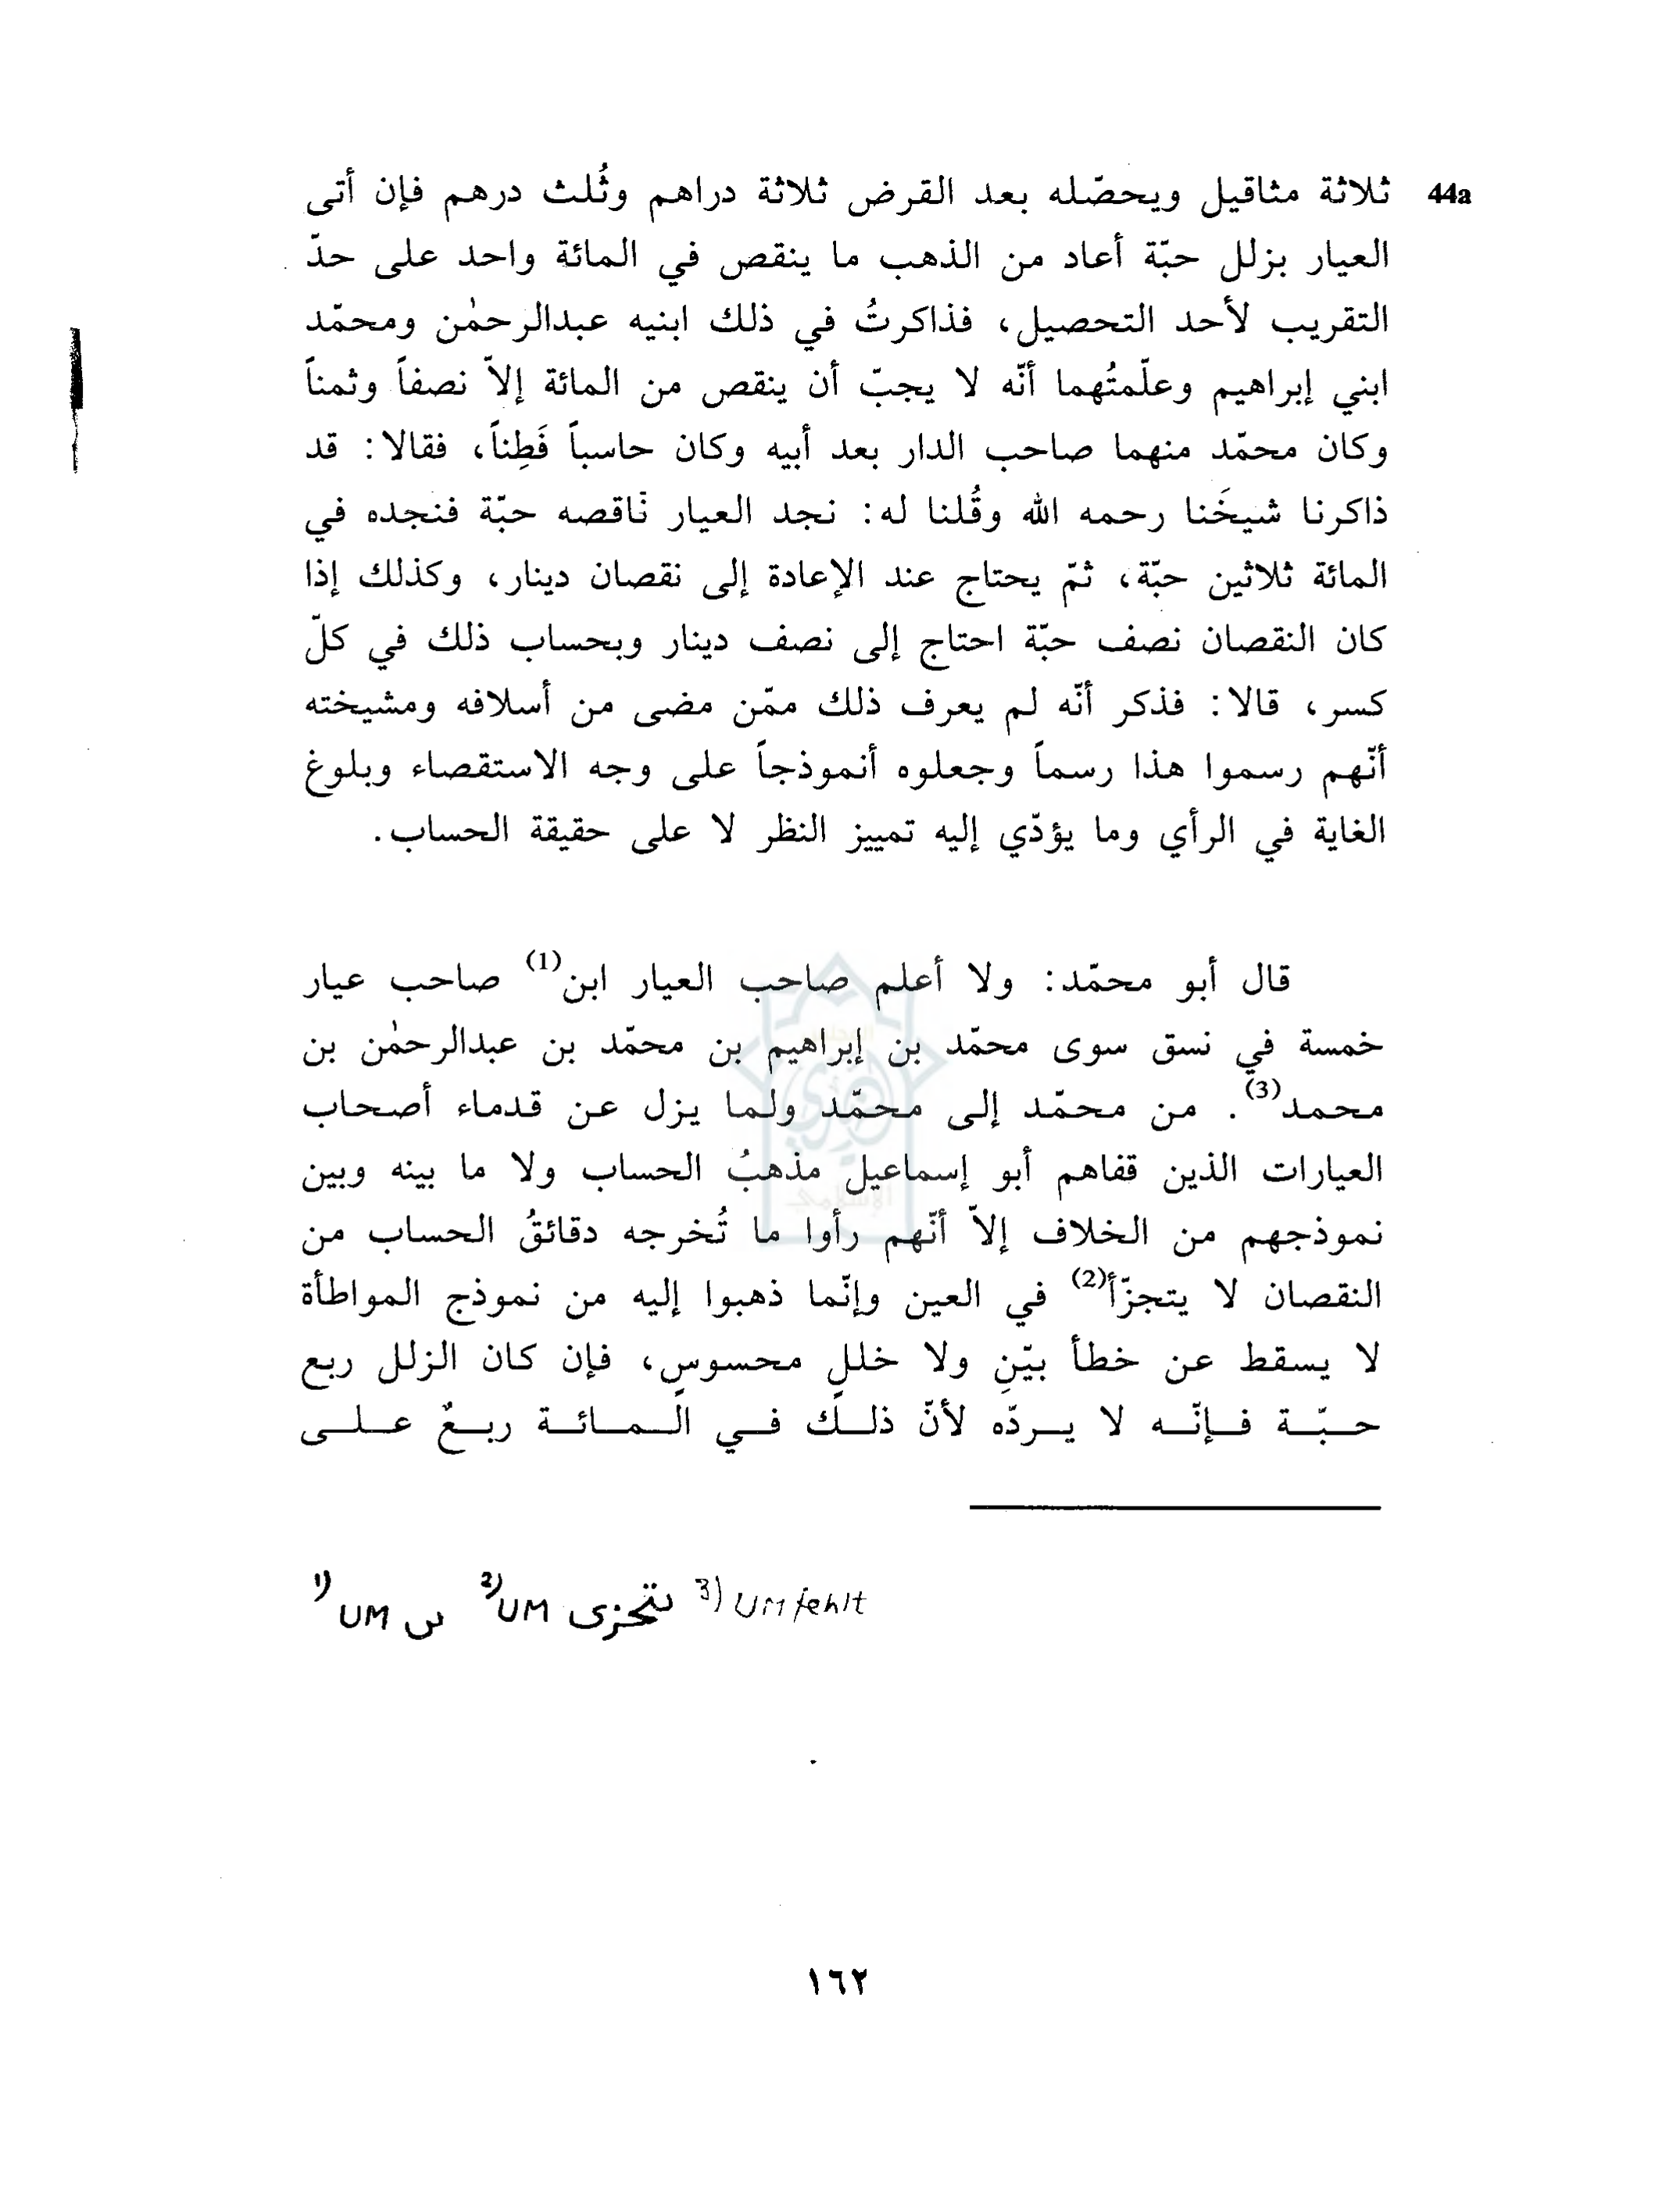 44a ثلاثة مثاقيل ويحصّله بعد القرض ثلاثة دراهم وثُلث درهم فإن أتى
العيار بزلل حبّة أعاد من الذهب ما ينقص في المائة واحد على حدّ
التقريب لأحد التحصيل، فذاكرتُ في ذلك ابنيه عبدالرحمٰن ومحمّد
ابني إبراهيم وعلّمتُهما أنّه لا يجبّ أن ينقص من المائة إلاّ نصفاً وثمناً
وكان محمّد منهما صاحب الدار بعد أبيه وكان حاسباً فَطِناً، فقالا: قد
ذاكرنا شيخَنا رحمه الله وقُلنا له: نجد العيار نَاقصه حبّة فنجده في
المائة ثلاثين حبّة، ثمّ يحتاج عند الإعادة إلى نقصان دينار، وكذلك إذا
كان النقصان نصف حبّة احتاج إلى نصف دينار وبحساب ذلك في كلّ
كسر، قالا: فذكر أنّه لم يعرف ذلك ممّن مضى من أسلافه ومشيخته
أنّهم رسموا هذا رسماً وجعلوه أنموذجاً على وجه الاستقصاء وبلوغ
الغاية في الرأي وما يؤدّي إليه تمييز النظر لا على حقيقة الحساب.
قال أبو محمّد: ولا أعلم صاحب العيار ابن(1) صاحب عيار
خمسة في نسق سوى محمّد بن إبراهيم بن محمّد بن عبدالرحمٰن بن
محمد(3). من محمّد إلى محمّد ولما يزل عن قدماء أصحاب
العيارات الذين قفاهم أبو إسماعيل مذهبُ الحساب ولا ما بينه وبين
نموذجهم من الخلاف إلاّ أنّهم رأوا ما تُخرجه دقائقُ الحساب من
النقصان لا يتجزّأ(2) في العين وإنّما ذهبوا إليه من نموذج المواطأة
لا يسقط عن خطأ بيّنِ ولا خللٍ محسوسٍ، فإن كان الزلل ربع
حبّة فإنّه لا يردّه لأنّ ذلك في المائة ربعٌ على
1) UM س 2) UM تتحزى 3) UM fehlt
١٦٢